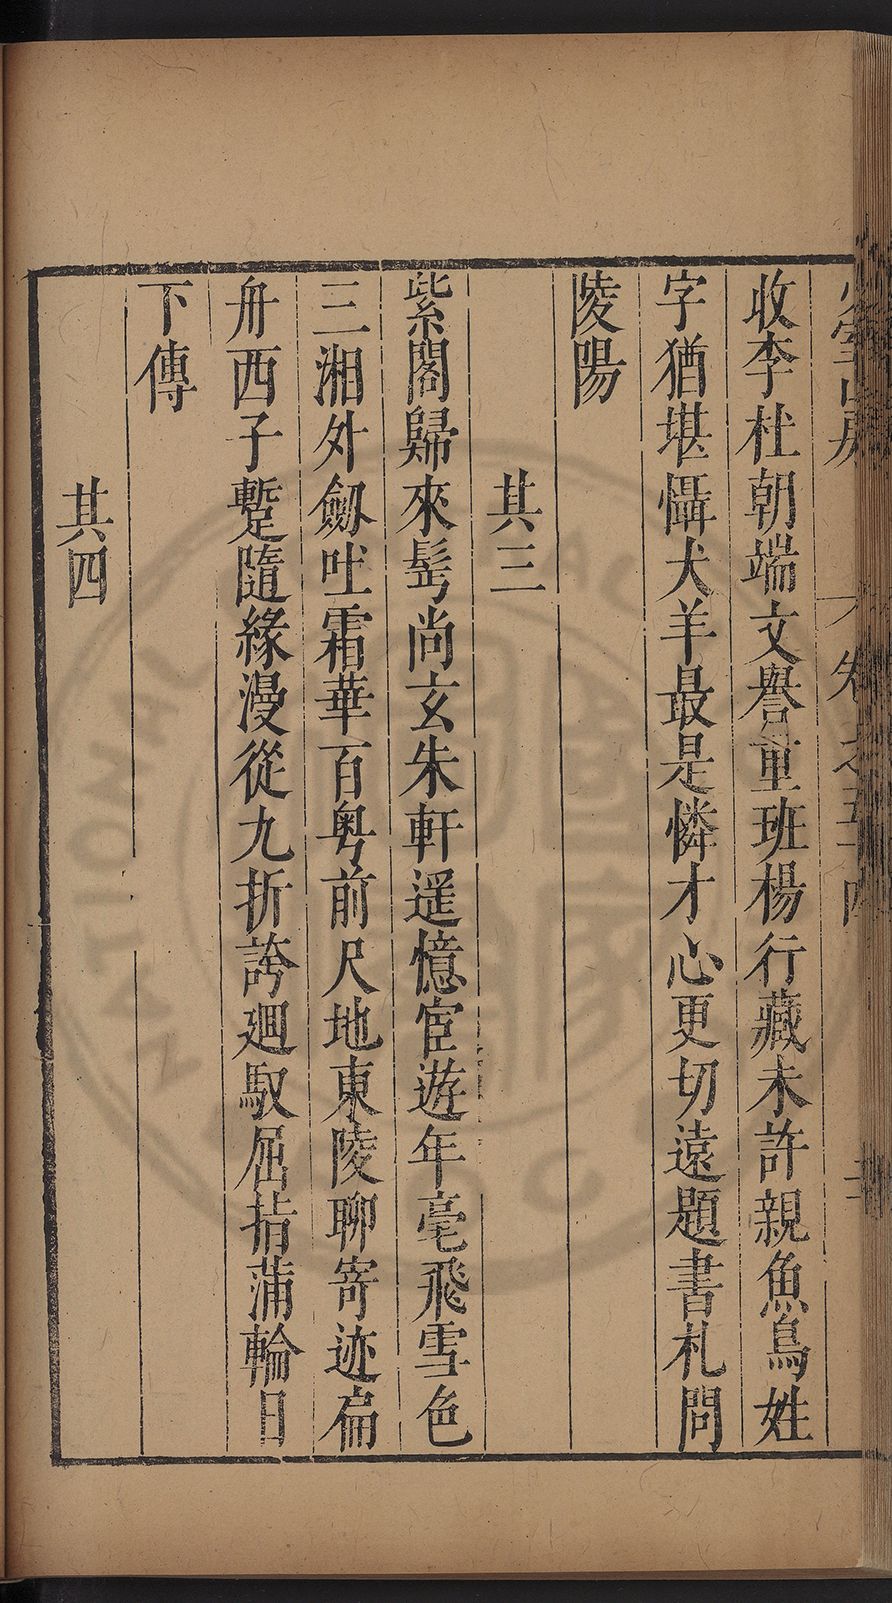 少室山房 卷之五十四 二
收李杜朝端文譽重班楊行藏未許親魚鳥姓
字猶堪懾犬羊最是憐才心更切遠題書札問
陵陽
其三
紫閣歸來髩尚玄朱軒遥憶宦遊年毫飛雪色
三湘外劒吐霜華百粤前尺地東陵聊寄迹扁
舟西子蹔隨緣漫從九折誇迴馭屈指蒲輪日
下傳
其四